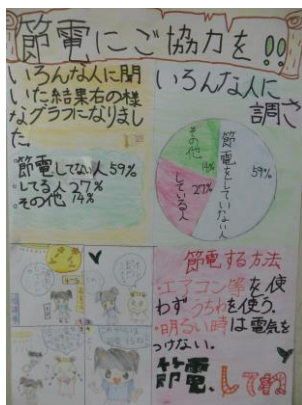 節電にご協力を!!
いろんな人に聞
いた結果右の様
なグラフになりまし
た。
節電してない人59%
・してる人27%
・その他14%
いろんな人に
調さ
節電をしていない人
59%
している人
27%
その他
14%
節電する方法
・エアコン等を使
わずうちわを使う.
・明るい時は電気を
つけない.
節電.してね